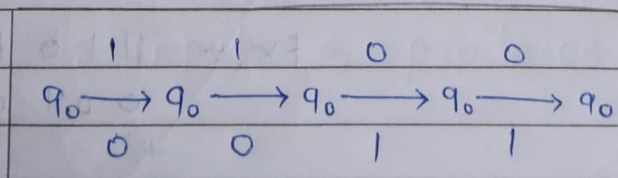 1 1 0 0
q₀ → q₀ → q₀ → q₀ → q₀
0 0 1 1